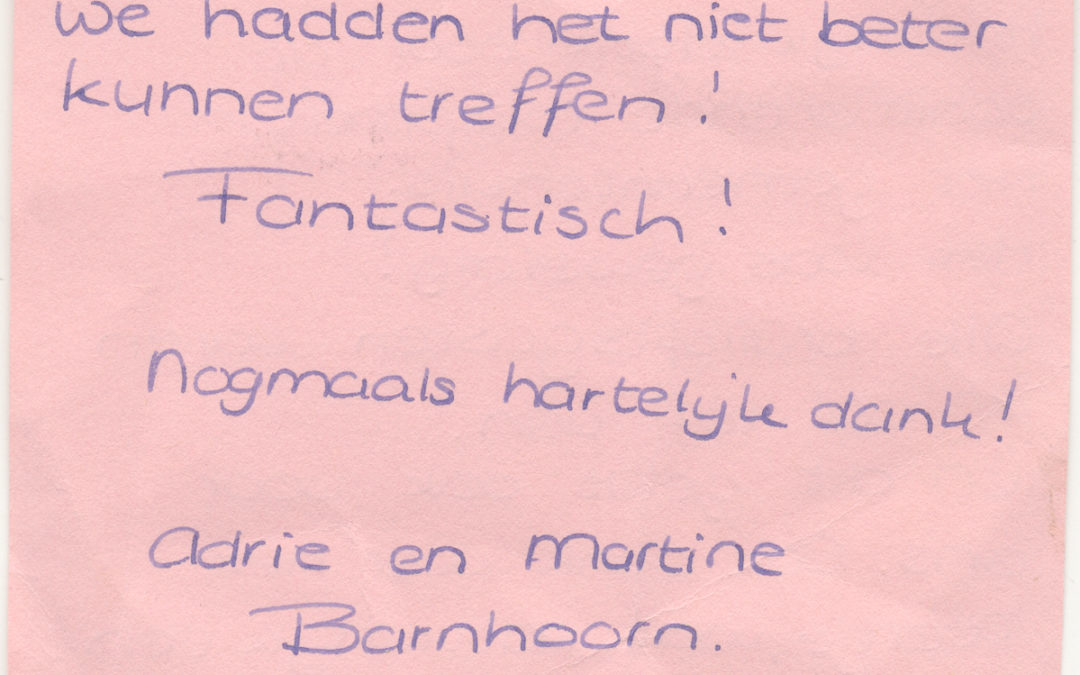 we hadden het niet beter
kunnen treffen!
Fantastisch!
Nogmaals hartelijk dank!
Adrie en Martine
Barnhoorn.